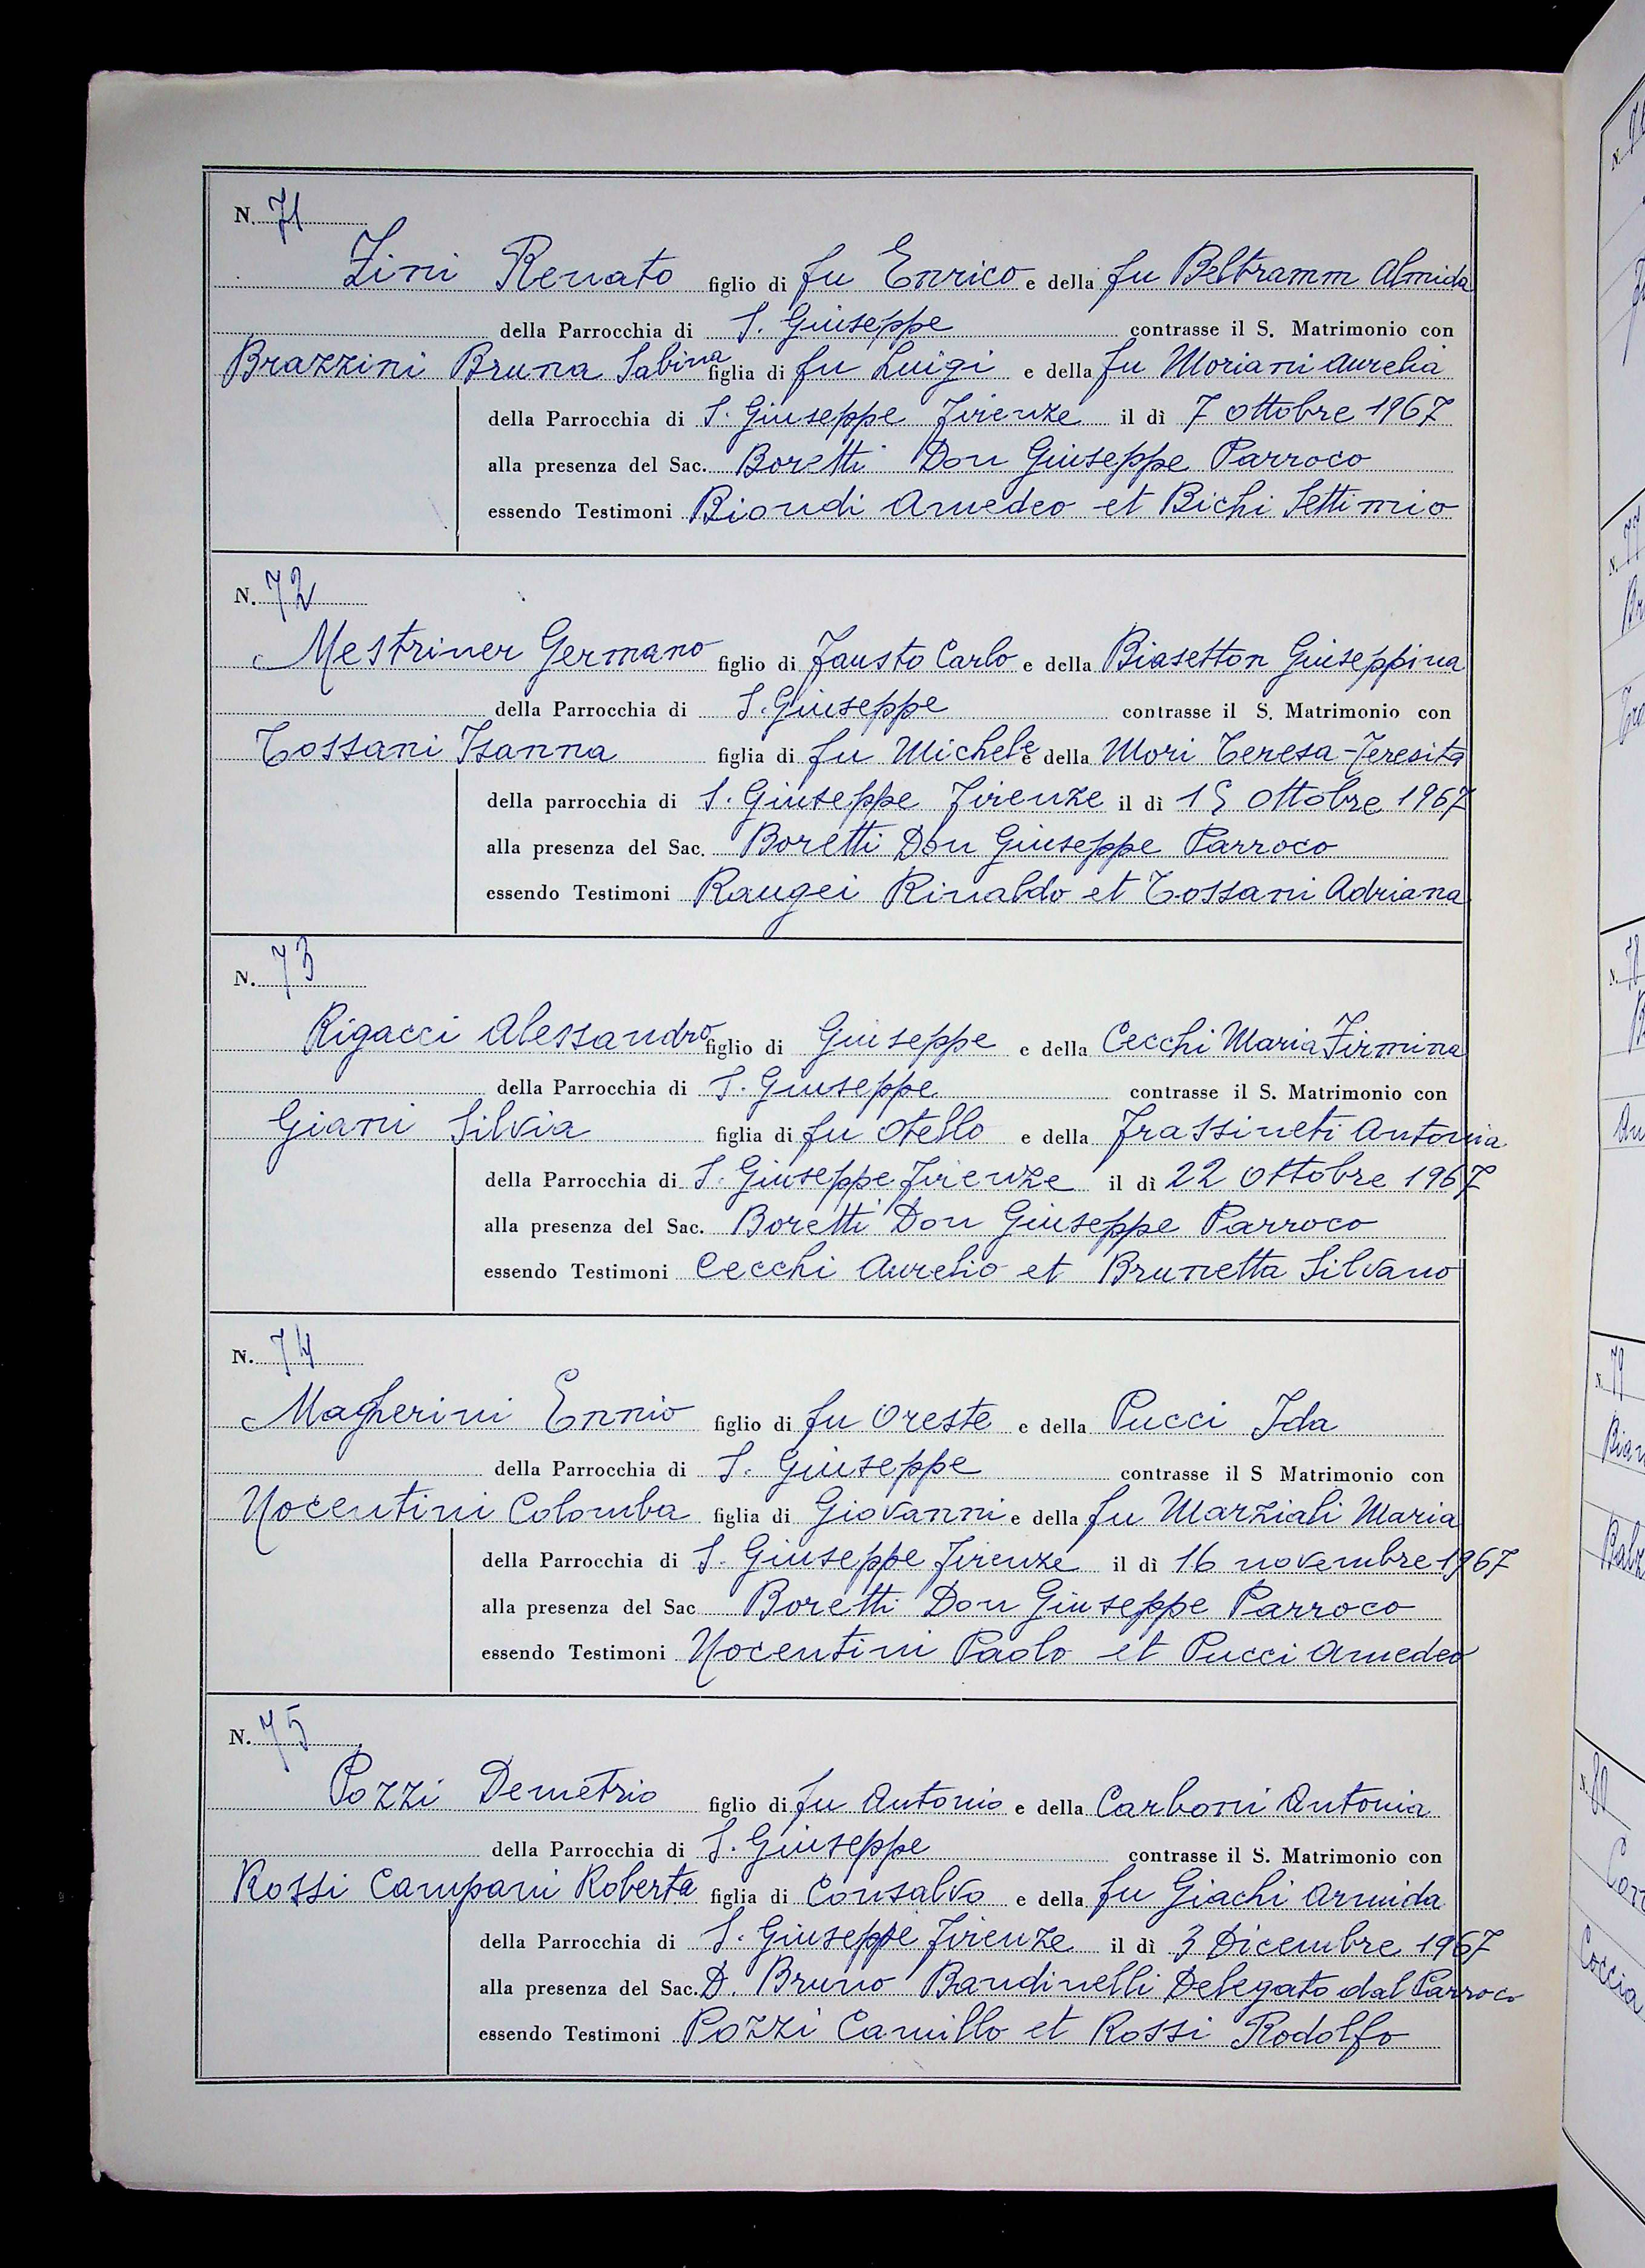 N. 71
Zini Renato figlio di fu Enrico e della fu Beltramm Almida
della Parrocchia di S. Giuseppe contrasse il S. Matrimonio con
Brazzini Bruna Sabina figlia di fu Luigi e della fu Moriani Aurelia
della Parrocchia di S. Giuseppe Firenze il dì 7 ottobre 1967
alla presenza del Sac. Boretti Don Giuseppe Parroco
essendo Testimoni Biondi Amedeo et Bichi Settimio
N. 72
Mestriner Germano figlio di Fausto Carlo e della Biasetton Giuseppina
della Parrocchia di S. Giuseppe contrasse il S. Matrimonio con
Tossani Isanna figlia di fu Michele e della Mori Teresa-Teresita
della parrocchia di S. Giuseppe Firenze il dì 15 ottobre 1967
alla presenza del Sac. Boretti Don Giuseppe Parroco
essendo Testimoni Raugei Rinaldo et Tossani Adriana
N. 73
Rigacci Alessandro figlio di Giuseppe e della Cecchi Maria Firmina
della Parrocchia di S. Giuseppe contrasse il S. Matrimonio con
Giani Silvia figlia di fu Otello e della Frassineti Antonia
della Parrocchia di S. Giuseppe Firenze il dì 22 ottobre 1967
alla presenza del Sac. Boretti Don Giuseppe Parroco
essendo Testimoni Cecchi Aurelio et Brunetta Silvano
N. 74
Magherini Ennio figlio di fu Oreste e della Pucci Ida
della Parrocchia di S. Giuseppe contrasse il S Matrimonio con
Nocentini Colomba figlia di Giovanni e della fu Marziali Maria
della Parrocchia di S. Giuseppe Firenze il dì 16 novembre 1967
alla presenza del Sac Boretti Don Giuseppe Parroco
essendo Testimoni Nocentini Paolo et Pucci Amedeo
N. 75
Pozzi Demetrio figlio di fu Antonio e della Carboni Antonia
della Parrocchia di S. Giuseppe contrasse il S. Matrimonio con
Rossi Campani Roberta figlia di Consalvo e della fu Giachi Armida
della Parrocchia di S. Giuseppe Firenze il dì 3 Dicembre 1967
alla presenza del Sac. D. Bruno Bandinelli Delegato dal Parroco
essendo Testimoni Pozzi Camillo et Rossi Rodolfo